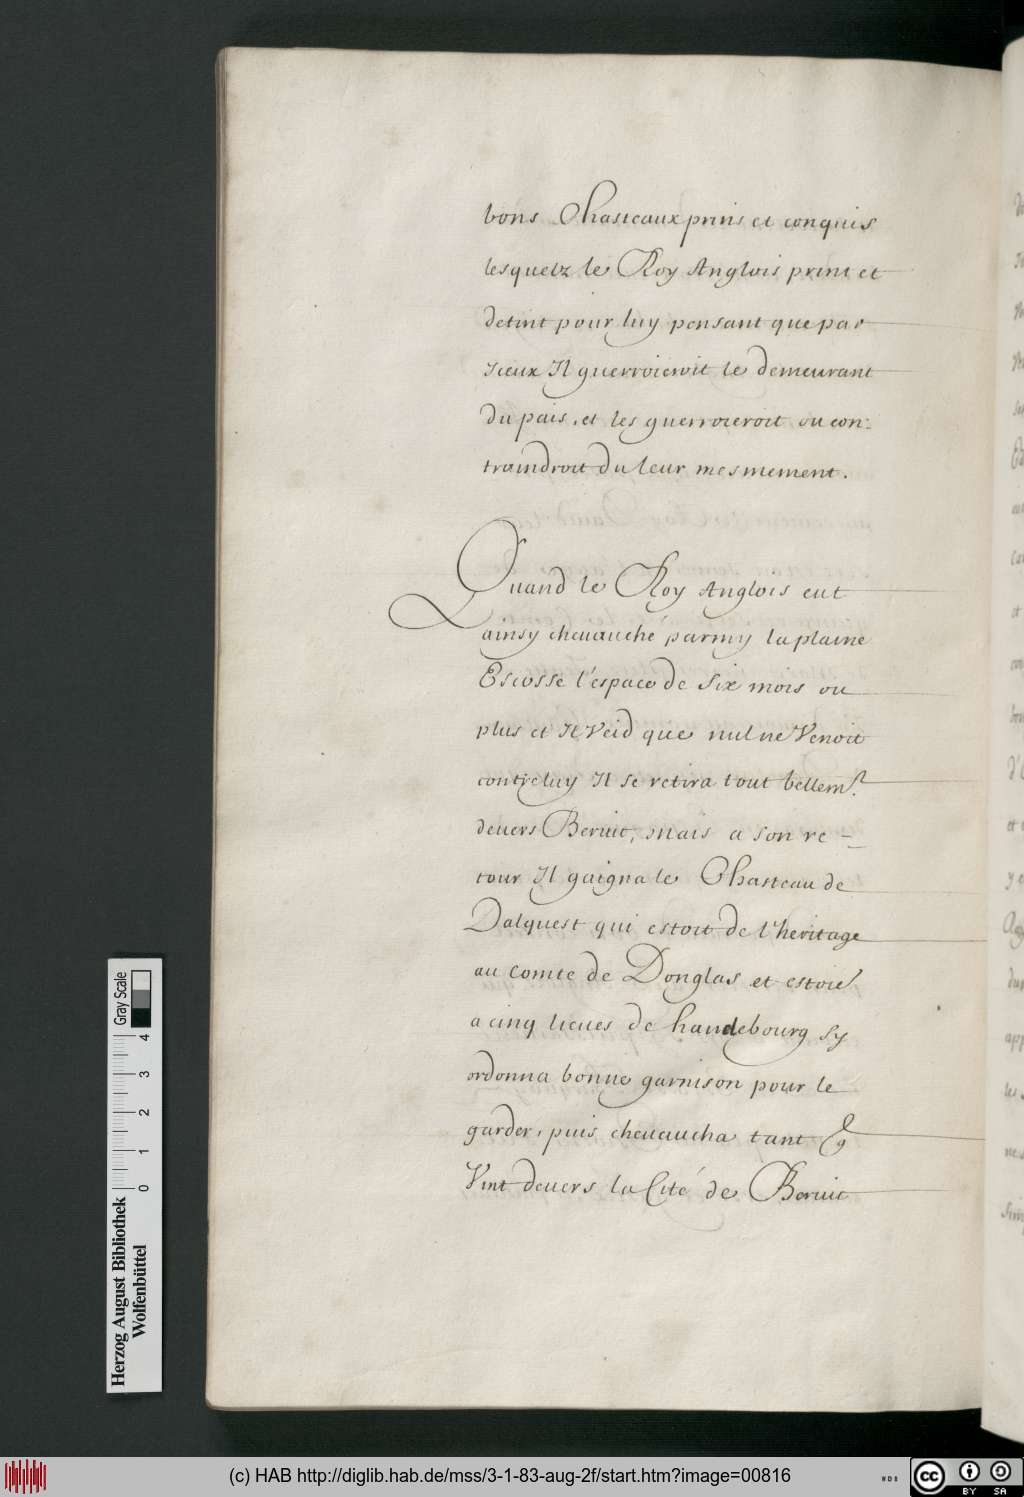 bons Chasteaux prins et conquis
lesquelz le Roy Anglois print et
detint pour luy pensant que par
iceux Il guerroieroit le demeurant
du pais, et les guerroieroit ou con:
traindroit du leur mesmement.
Quand le Roy Anglois eut
ainsy cheuauché parmy la plaine
Escosse l'espace de six mois ou
plus et Il Veid que nul ne Venoit
contre luy Il se retira tout bellem.t
deuers Beruic, mais a son re-
tour Il gaigna le Chasteau de
Dalquest qui estoit de l'heritage
au Comte de Donglas et estoit
a cinq lieues de handebourg sy
ordonna bonne garnison pour le
garder, puis cheuaucha tant q
Vint deuers la Cité de Beruic
Gray Scale
0 1 2 3 4
Herzog August Bibliothek
Wolfenbüttel
(c) HAB http://diglib.hab.de/mss/3-1-83-aug-2f/start.htm?image=00816
WDB
cc BY SA